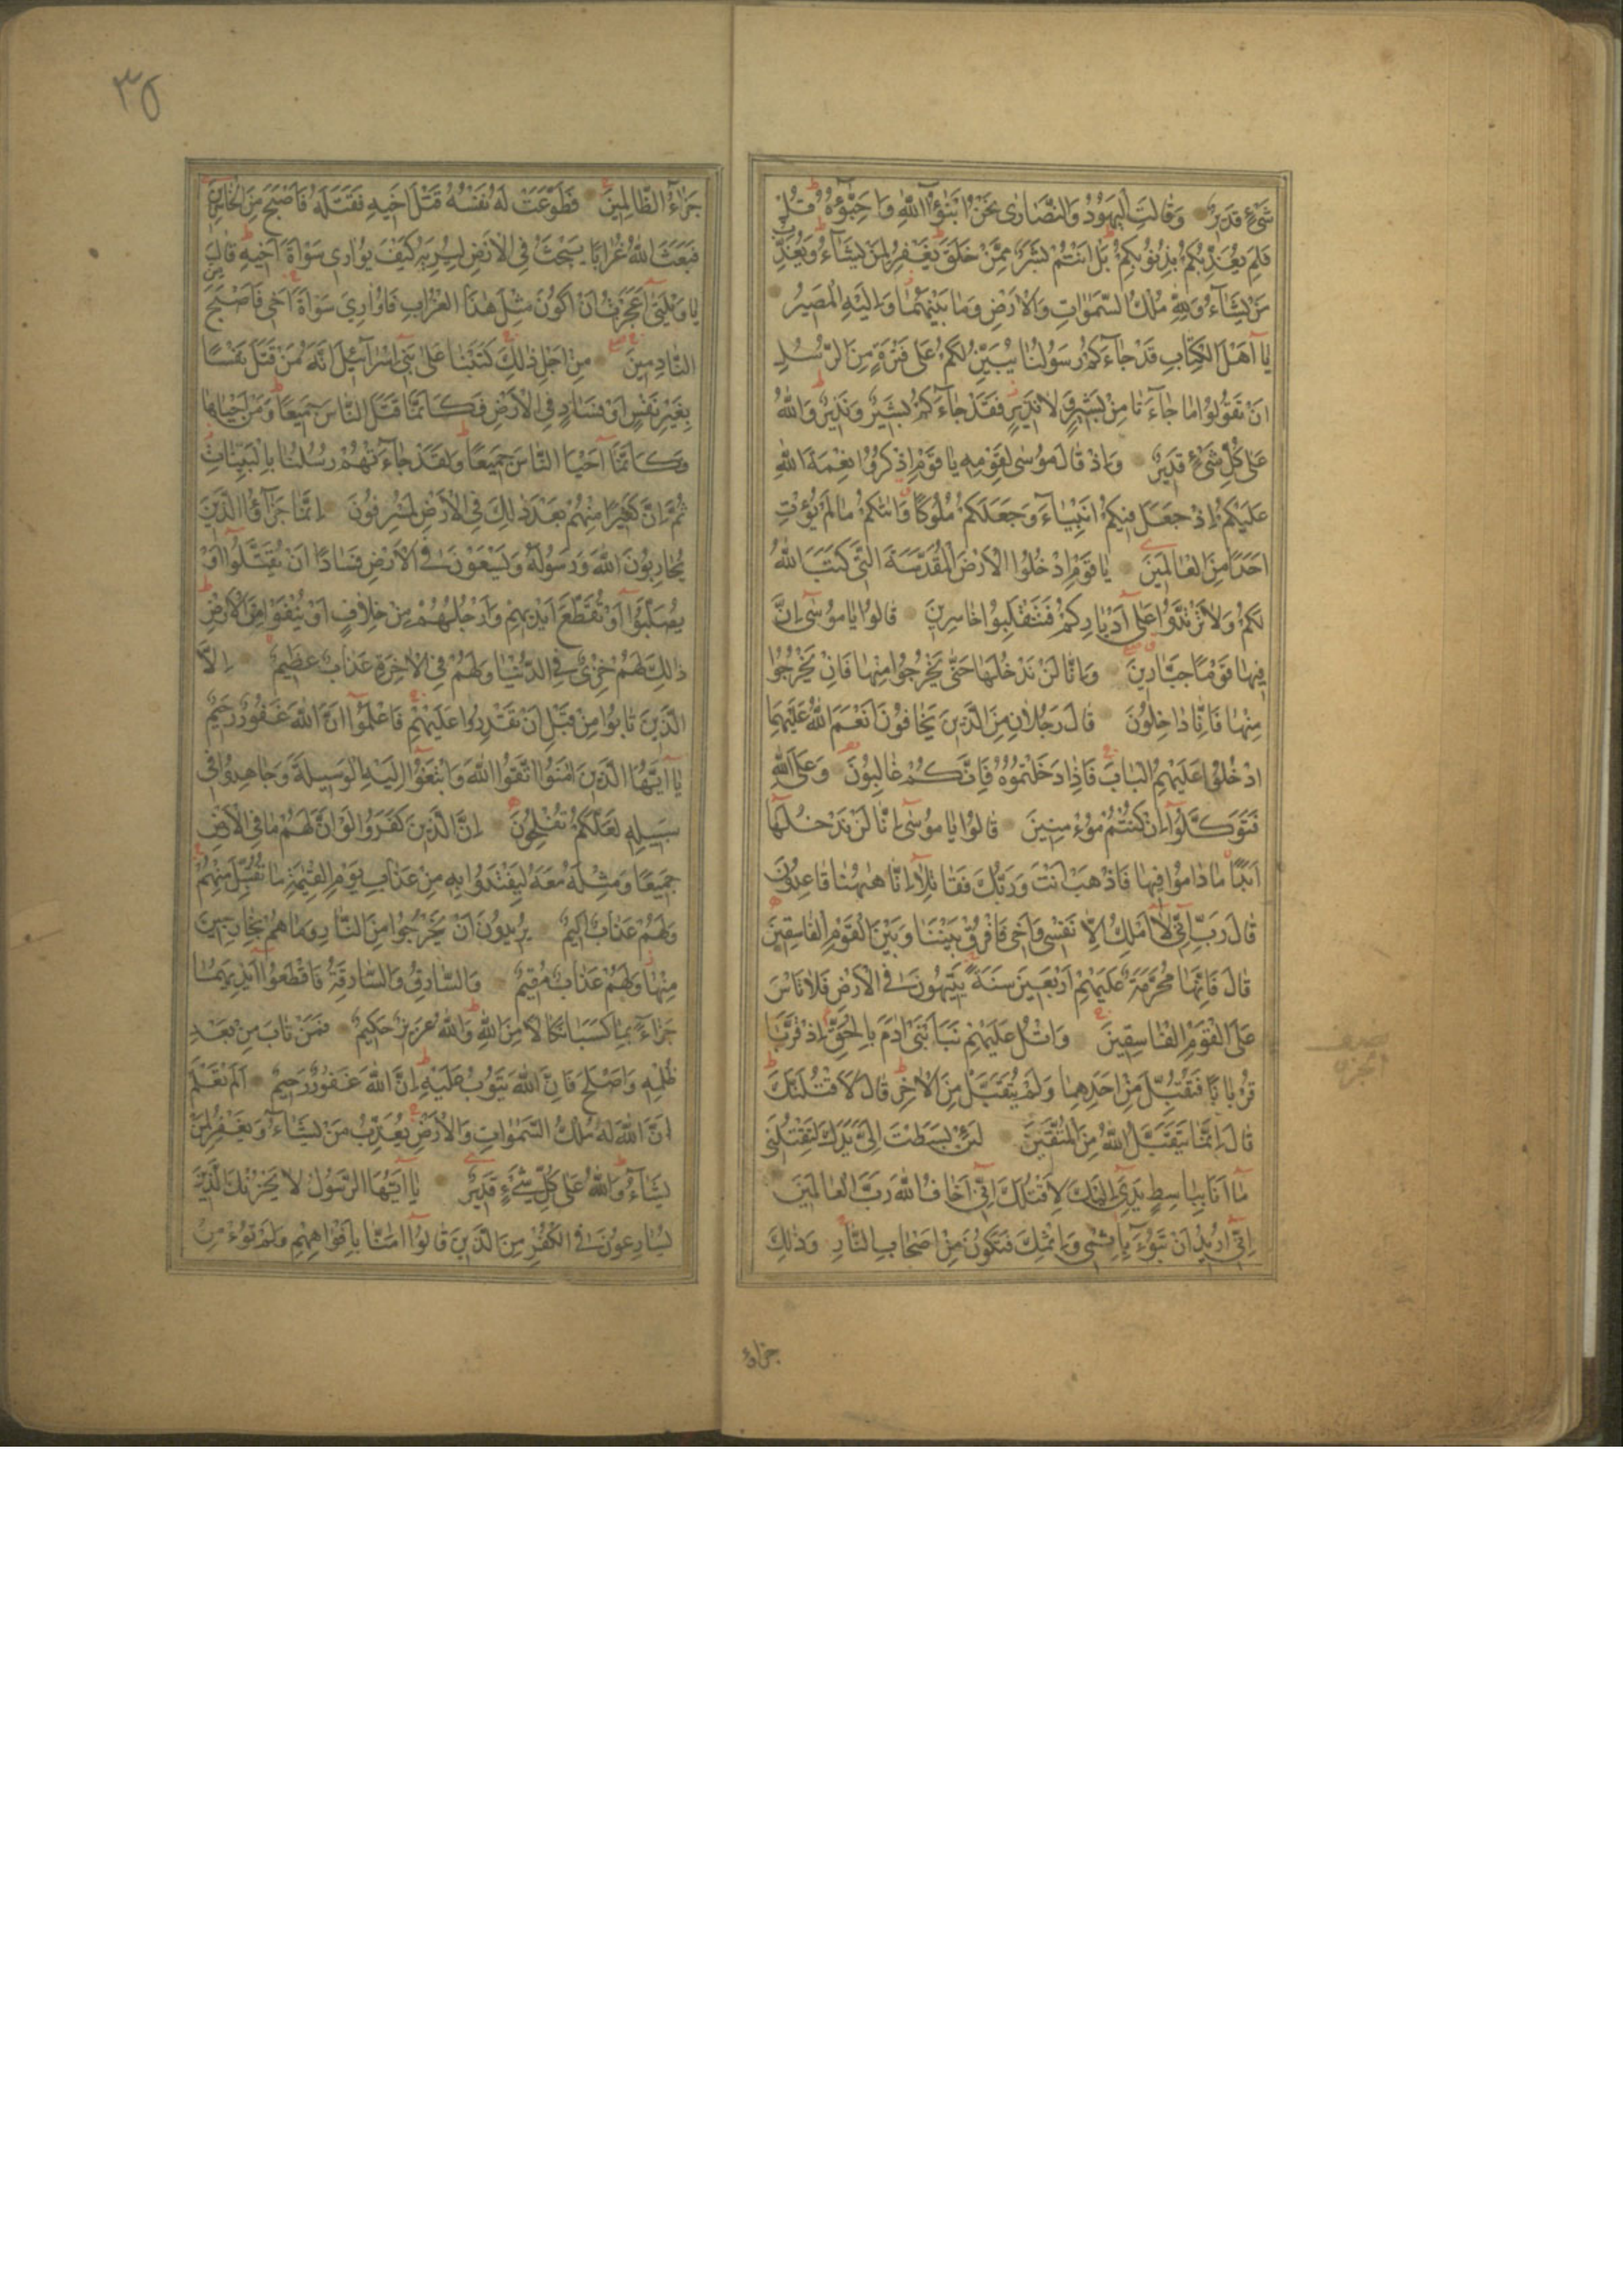 شَىْءٍ قَدِيرٌ وَقَالَتِ الْيَهُودُ وَالنَّصَارٰى نَحْنُ اَبْنٰٓؤُا اللّٰهِ وَاَحِبَّٓاؤُهُ قُلْ
فَلِمَ يُعَذِّبُكُمْ بِذُنُوبِكُمْ بَلْ اَنْتُمْ بَشَرٌ مِمَّنْ خَلَقَ يَغْفِرُ لِمَنْ يَشَٓاءُ وَيُعَذِّبُ
مَنْ يَشَٓاءُ وَلِلّٰهِ مُلْكُ السَّمٰوَاتِ وَالْاَرْضِ وَمَا بَيْنَهُمَا وَاِلَيْهِ الْمَصِيرُ
يَٓا اَهْلَ الْكِتَابِ قَدْ جَٓاءَكُمْ رَسُولُنَا يُبَيِّنُ لَكُمْ عَلٰى فَتْرَةٍ مِنَ الرُّسُلِ
اَنْ تَقُولُوا مَا جَٓاءَنَا مِنْ بَشِيرٍ وَلَا نَذِيرٍ فَقَدْ جَٓاءَكُمْ بَشِيرٌ وَنَذِيرٌ وَاللّٰهُ
عَلٰى كُلِّ شَىْءٍ قَدِيرٌ وَاِذْ قَالَ مُوسٰى لِقَوْمِهِ يَا قَوْمِ اذْكُرُوا نِعْمَةَ اللّٰهِ
عَلَيْكُمْ اِذْ جَعَلَ فِيكُمْ اَنْبِيَٓاءَ وَجَعَلَكُمْ مُلُوكًا وَاٰتٰيكُمْ مَا لَمْ يُؤْتِ
اَحَدًا مِنَ الْعَالَمِينَ يَا قَوْمِ ادْخُلُوا الْاَرْضَ الْمُقَدَّسَةَ الَّتِى كَتَبَ اللّٰهُ
لَكُمْ وَلَا تَرْتَدُّوا عَلٰٓى اَدْبَارِكُمْ فَتَنْقَلِبُوا خَاسِرِينَ قَالُوا يَا مُوسٰٓى اِنَّ
فِيهَا قَوْمًا جَبَّارِينَ وَاِنَّا لَنْ نَدْخُلَهَا حَتّٰى يَخْرُجُوا مِنْهَا فَاِنْ يَخْرُجُوا
مِنْهَا فَاِنَّا دَاخِلُونَ قَالَ رَجُلَانِ مِنَ الَّذِينَ يَخَافُونَ اَنْعَمَ اللّٰهُ عَلَيْهِمَا
ادْخُلُوا عَلَيْهِمُ الْبَابَ فَاِذَا دَخَلْتُمُوهُ فَاِنَّكُمْ غَالِبُونَ وَعَلَى اللّٰهِ
فَتَوَكَّلُٓوا اِنْ كُنْتُمْ مُؤْمِنِينَ قَالُوا يَا مُوسٰٓى اِنَّا لَنْ نَدْخُلَهَٓا
اَبَدًا مَا دَامُوا فِيهَا فَاذْهَبْ اَنْتَ وَرَبُّكَ فَقَاتِلَٓا اِنَّا هٰهُنَا قَاعِدُونَ
قَالَ رَبِّ اِنِّى لَٓا اَمْلِكُ اِلَّا نَفْسِى وَاَخِى فَافْرُقْ بَيْنَنَا وَبَيْنَ الْقَوْمِ الْفَاسِقِينَ
قَالَ فَاِنَّهَا مُحَرَّمَةٌ عَلَيْهِمْ اَرْبَعِينَ سَنَةً يَتِيهُونَ فِى الْاَرْضِ فَلَا تَاْسَ
عَلَى الْقَوْمِ الْفَاسِقِينَ وَاتْلُ عَلَيْهِمْ نَبَاَ ابْنَىْ اٰدَمَ بِالْحَقِّ اِذْ قَرَّبَا
قُرْبَانًا فَتُقُبِّلَ مِنْ اَحَدِهِمَا وَلَمْ يُتَقَبَّلْ مِنَ الْاٰخَرِ قَالَ لَاَقْتُلَنَّكَ
قَالَ اِنَّمَا يَتَقَبَّلُ اللّٰهُ مِنَ الْمُتَّقِينَ لَئِنْ بَسَطْتَ اِلَىَّ يَدَكَ لِتَقْتُلَنِى
مَٓا اَنَا بِبَاسِطٍ يَدِىَ اِلَيْكَ لِاَقْتُلَكَ اِنِّٓى اَخَافُ اللّٰهَ رَبَّ الْعَالَمِينَ
اِنِّٓى اُرِيدُ اَنْ تَبُٓوءَ بِاِثْمِى وَاِثْمِكَ فَتَكُونَ مِنْ اَصْحَابِ النَّارِ وَذٰلِكَ
جزاؤ
نصف
الجزء
٣٥
جَزٰٓؤُا الظَّالِمِينَ فَطَوَّعَتْ لَهُ نَفْسُهُ قَتْلَ اَخِيهِ فَقَتَلَهُ فَاَصْبَحَ مِنَ الْخَاسِرِينَ
فَبَعَثَ اللّٰهُ غُرَابًا يَبْحَثُ فِى الْاَرْضِ لِيُرِيَهُ كَيْفَ يُوَارِى سَوْاَةَ اَخِيهِ قَالَ
يَا وَيْلَتٰٓى اَعَجَزْتُ اَنْ اَكُونَ مِثْلَ هٰذَا الْغُرَابِ فَاُوَارِىَ سَوْاَةَ اَخِى فَاَصْبَحَ مِنَ
النَّادِمِينَ مِنْ اَجْلِ ذٰلِكَ كَتَبْنَا عَلٰى بَنِٓى اِسْرَٓائِيلَ اَنَّهُ مَنْ قَتَلَ نَفْسًا
بِغَيْرِ نَفْسٍ اَوْ فَسَادٍ فِى الْاَرْضِ فَكَاَنَّمَا قَتَلَ النَّاسَ جَمِيعًا وَمَنْ اَحْيَاهَا
فَكَاَنَّمَٓا اَحْيَا النَّاسَ جَمِيعًا وَلَقَدْ جَٓاءَتْهُمْ رُسُلُنَا بِالْبَيِّنَاتِ
ثُمَّ اِنَّ كَثِيرًا مِنْهُمْ بَعْدَ ذٰلِكَ فِى الْاَرْضِ لَمُسْرِفُونَ اِنَّمَا جَزٰٓؤُا الَّذِينَ
يُحَارِبُونَ اللّٰهَ وَرَسُولَهُ وَيَسْعَوْنَ فِى الْاَرْضِ فَسَادًا اَنْ يُقَتَّلُٓوا اَوْ
يُصَلَّبُٓوا اَوْ تُقَطَّعَ اَيْدِيهِمْ وَاَرْجُلُهُمْ مِنْ خِلَافٍ اَوْ يُنْفَوْا مِنَ الْاَرْضِ
ذٰلِكَ لَهُمْ خِزْىٌ فِى الدُّنْيَا وَلَهُمْ فِى الْاٰخِرَةِ عَذَابٌ عَظِيمٌ اِلَّا
الَّذِينَ تَابُوا مِنْ قَبْلِ اَنْ تَقْدِرُوا عَلَيْهِمْ فَاعْلَمُٓوا اَنَّ اللّٰهَ غَفُورٌ رَحِيمٌ
يَٓا اَيُّهَا الَّذِينَ اٰمَنُوا اتَّقُوا اللّٰهَ وَابْتَغُٓوا اِلَيْهِ الْوَسِيلَةَ وَجَاهِدُوا فِى
سَبِيلِهِ لَعَلَّكُمْ تُفْلِحُونَ اِنَّ الَّذِينَ كَفَرُوا لَوْ اَنَّ لَهُمْ مَا فِى الْاَرْضِ
جَمِيعًا وَمِثْلَهُ مَعَهُ لِيَفْتَدُوا بِهِ مِنْ عَذَابِ يَوْمِ الْقِيٰمَةِ مَا تُقُبِّلَ مِنْهُمْ
وَلَهُمْ عَذَابٌ اَلِيمٌ يُرِيدُونَ اَنْ يَخْرُجُوا مِنَ النَّارِ وَمَا هُمْ بِخَارِجِينَ
مِنْهَا وَلَهُمْ عَذَابٌ مُقِيمٌ وَالسَّارِقُ وَالسَّارِقَةُ فَاقْطَعُٓوا اَيْدِيَهُمَا
جَزَٓاءً بِمَا كَسَبَا نَكَالًا مِنَ اللّٰهِ وَاللّٰهُ عَزِيزٌ حَكِيمٌ فَمَنْ تَابَ مِنْ بَعْدِ
ظُلْمِهِ وَاَصْلَحَ فَاِنَّ اللّٰهَ يَتُوبُ عَلَيْهِ اِنَّ اللّٰهَ غَفُورٌ رَحِيمٌ اَلَمْ تَعْلَمْ
اَنَّ اللّٰهَ لَهُ مُلْكُ السَّمٰوَاتِ وَالْاَرْضِ يُعَذِّبُ مَنْ يَشَٓاءُ وَيَغْفِرُ لِمَنْ
يَشَٓاءُ وَاللّٰهُ عَلٰى كُلِّ شَىْءٍ قَدِيرٌ يَٓا اَيُّهَا الرَّسُولُ لَا يَحْزُنْكَ الَّذِينَ
يُسَارِعُونَ فِى الْكُفْرِ مِنَ الَّذِينَ قَالُٓوا اٰمَنَّا بِاَفْوَاهِهِمْ وَلَمْ تُؤْمِنْ